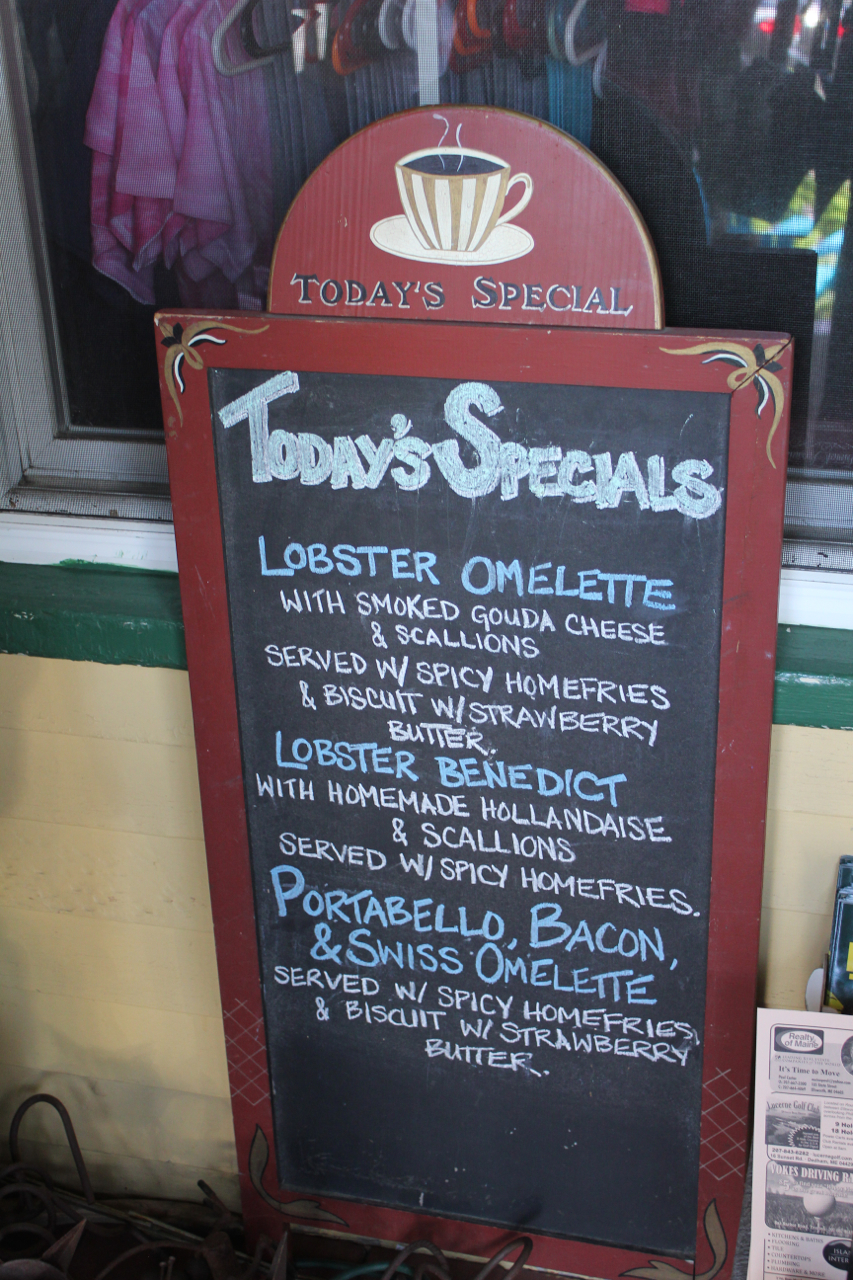 TODAY'S SPECIAL
TODAY'S SPECIALS
LOBSTER OMELETTE
WITH SMOKED GOUDA CHEESE
& SCALLIONS
SERVED W/ SPICY HOMEFRIES
& BISCUIT W/ STRAWBERRY
BUTTER.
LOBSTER BENEDICT
WITH HOMEMADE HOLLANDAISE
& SCALLIONS
SERVED W/ SPICY HOMEFRIES.
PORTABELLO, BACON,
& SWISS OMELETTE
SERVED W/ SPICY HOMEFRIES
& BISCUIT W/ STRAWBERRY
BUTTER.
Realty
of Maine
It's Time to Move
Lucerne Golf Club
9 Hol
18 Hol
207-843-6282
VOKES DRIVING RA
• KITCHENS & BATHS
• FLOORING
• TILE
• COUNTERTOPS
• PLUMBING
• HARDWARE & MORE
ISLA
INTER